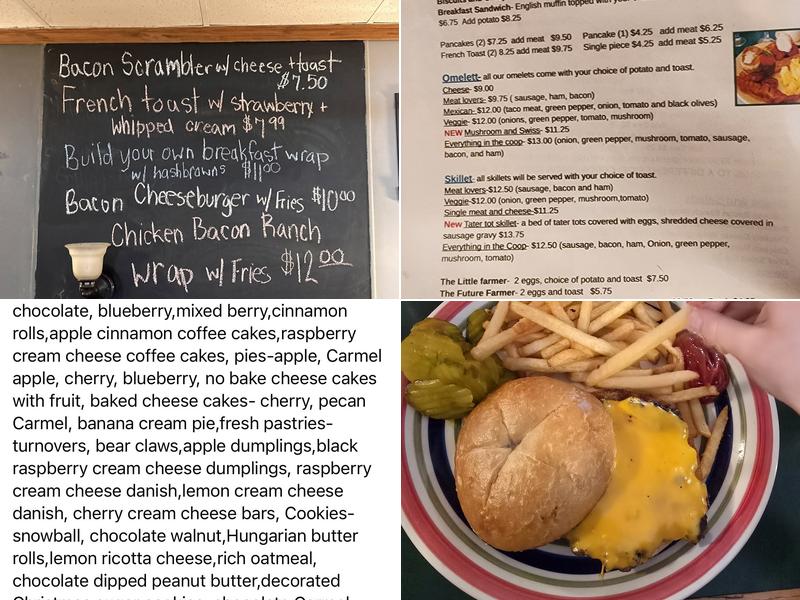 Bacon Scrambler w/ cheese + toast
$7.50
French toast w/ strawberry +
whipped cream $7.99
Build your own breakfast wrap
w/ hashbrowns $11.00
Bacon Cheeseburger w/ Fries $10.00
Chicken Bacon Ranch
wrap w/ Fries $12.00
Breakfast Sandwich- English muffin topped with
$6.75 Add potato $8.25
Pancakes (2) $7.25 add meat $9.50 Pancake (1) $4.25 add meat $6.25
French Toast (2) 8.25 add meat $9.75 Single piece $4.25 add meat $5.25
Omelett- all our omelets come with your choice of potato and toast.
Cheese- $9.00
Meat lovers- $9.75 ( sausage, ham, bacon)
Mexican- $12.00 (taco meat, green pepper, onion, tomato and black olives)
Veggie- $12.00 (onions, green pepper, tomato, mushroom)
NEW Mushroom and Swiss- $11.25
Everything in the coop- $13.00 (onion, green pepper, mushroom, tomato, sausage,
bacon, and ham)
Skillet- all skillets will be served with your choice of toast.
Meat lovers-$12.50 (sausage, bacon and ham)
Veggie-$12.00 (onion, green pepper, mushroom,tomato)
Single meat and cheese-$11.25
New Tater tot skillet- a bed of tater tots covered with eggs, shredded cheese covered in
sausage gravy $13.75
Everything in the Coop- $12.50 (sausage, bacon, ham, Onion, green pepper,
mushroom, tomato)
The Little farmer- 2 eggs, choice of potato and toast $7.50
The Future Farmer- 2 eggs and toast $5.75
chocolate, blueberry,mixed berry,cinnamon
rolls,apple cinnamon coffee cakes,raspberry
cream cheese coffee cakes, pies-apple, Carmel
apple, cherry, blueberry, no bake cheese cakes
with fruit, baked cheese cakes- cherry, pecan
Carmel, banana cream pie,fresh pastries-
turnovers, bear claws,apple dumplings,black
raspberry cream cheese dumplings, raspberry
cream cheese danish,lemon cream cheese
danish, cherry cream cheese bars, Cookies-
snowball, chocolate walnut,Hungarian butter
rolls,lemon ricotta cheese,rich oatmeal,
chocolate dipped peanut butter,decorated